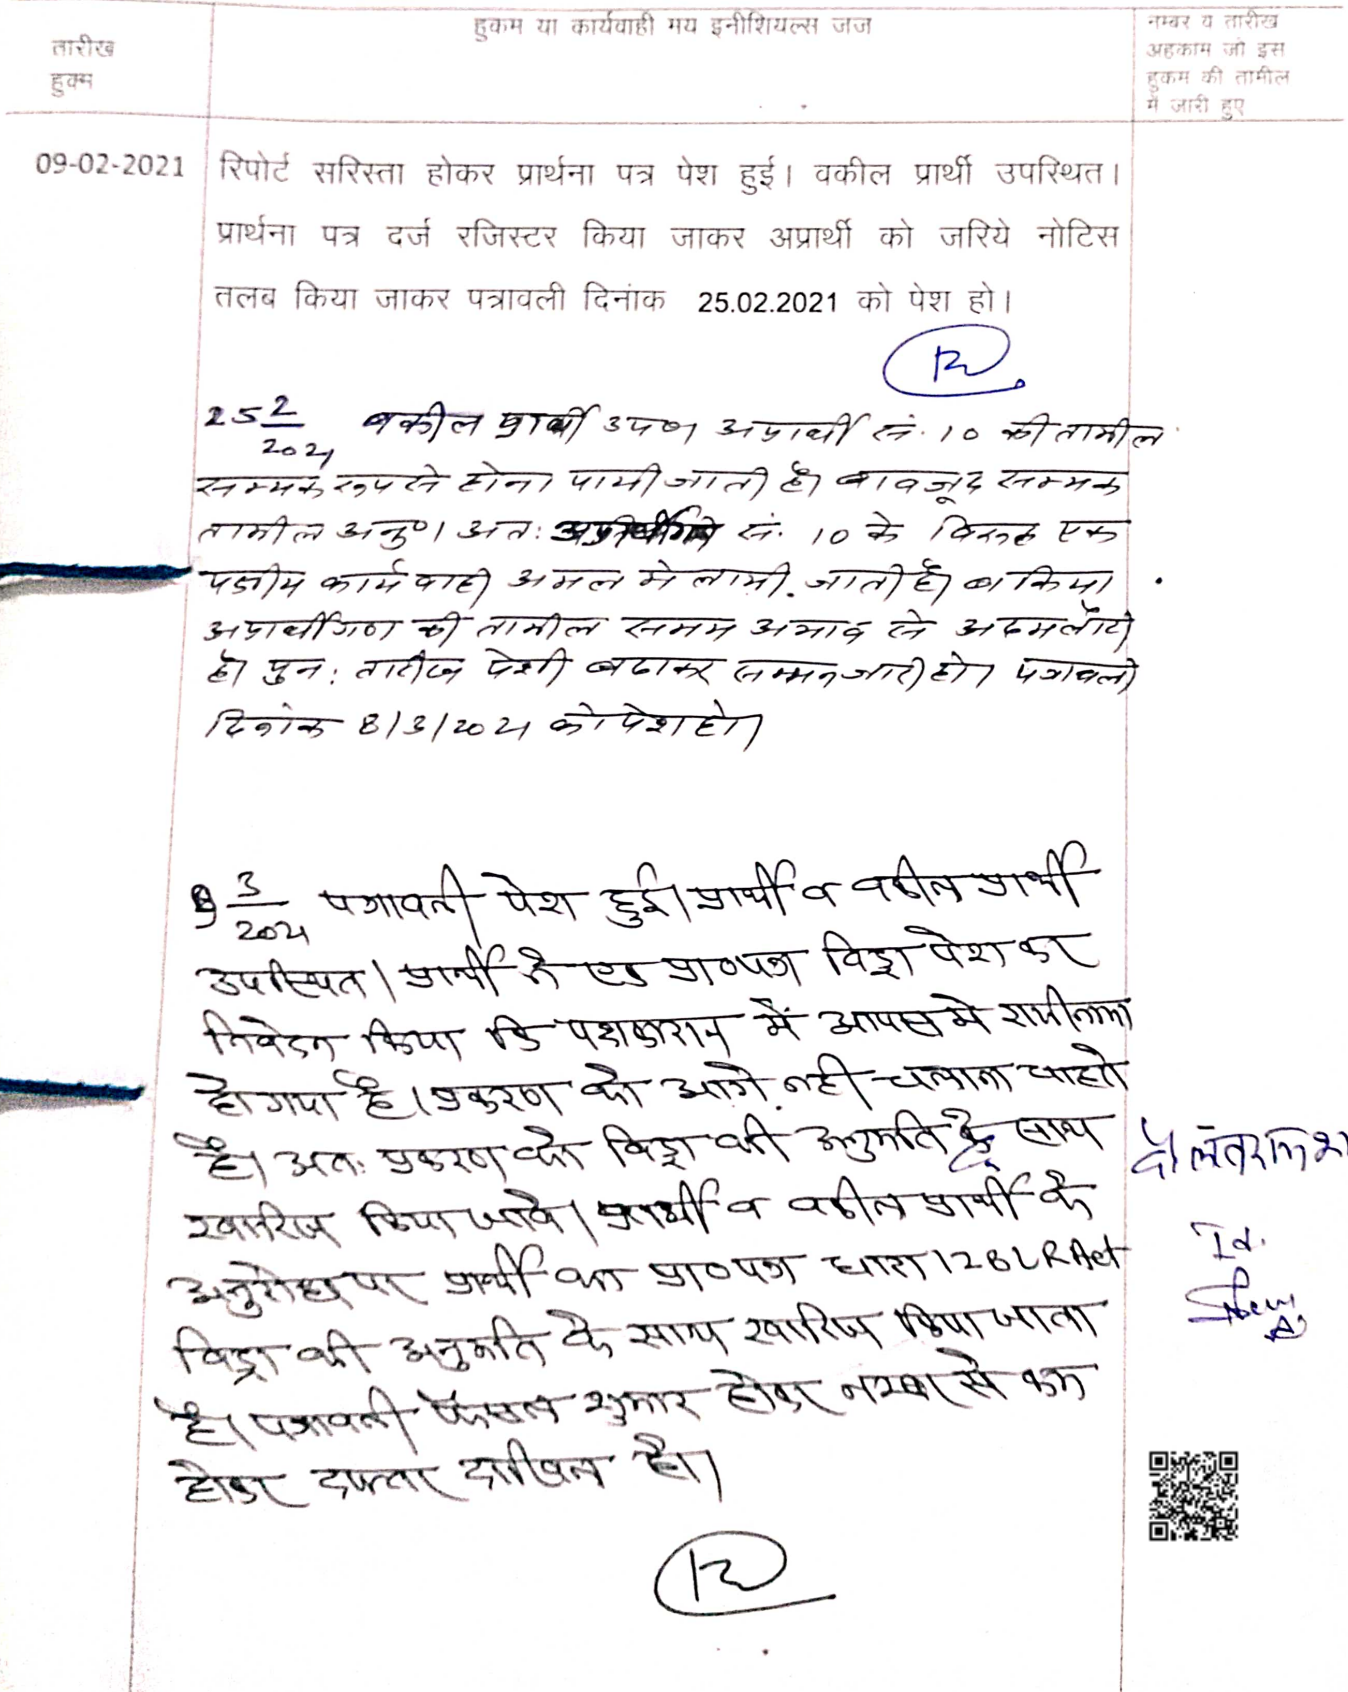 तारीख
हुक्म
हुकम या कार्यवाही मय इनीशियल्स जज
नम्बर व तारीख
अहकाम जो इस
हुकम की तामील
में जारी हुए
09-02-2021 रिपोर्ट सरिस्ता होकर प्रार्थना पत्र पेश हुई। वकील प्रार्थी उपस्थित।
प्रार्थना पत्र दर्ज रजिस्टर किया जाकर अप्रार्थी को जरिये नोटिस
तलब किया जाकर पत्रावली दिनांक 25.02.2021 को पेश हो।
25 2/2021 वकील प्रार्थी उप० अप्रार्थी सं. 10 की तामील
सम्मक रूप से होना पायी जाती है। बावजूद सम्मक
तामील अनु०। अतः सं. 10 के विरूद्ध एक
पक्षीय कार्यवाही अमल मे लायी जाती है। बकिया
अप्रार्थीगण की तामील समय अभाव से अदमलौटी
है। पुनः तारीख पेशी बढाकर सम्मन जारी हो। पत्रावली
दिनांक 8/3/2021 को पेश हो।
3/2021 पत्रावली पेश हुई। प्रार्थी व वकील प्रार्थी
उपस्थित। प्रार्थी ने एक प्रा०पत्र विड्रा पेश कर
निवेदन किया कि पक्षकारान में आपस मे राजीनामा
हो गया है। प्रकरण को आगे नही चलाना चाहते
है। अतः प्रकरण को विड्रा की अनुमति के साथ
खारिज किया जावे। प्रार्थी व वकील प्रार्थी के
अनुरोध पर प्रार्थी का प्रा०पत्र धारा 128 LR Act
विड्रा की अनुमति के साथ खारिज किया जाता
है। पत्रावली फैसल शुमार होकर नम्बर से कम
होकर दफ्तर दाखिल हो।
Id.